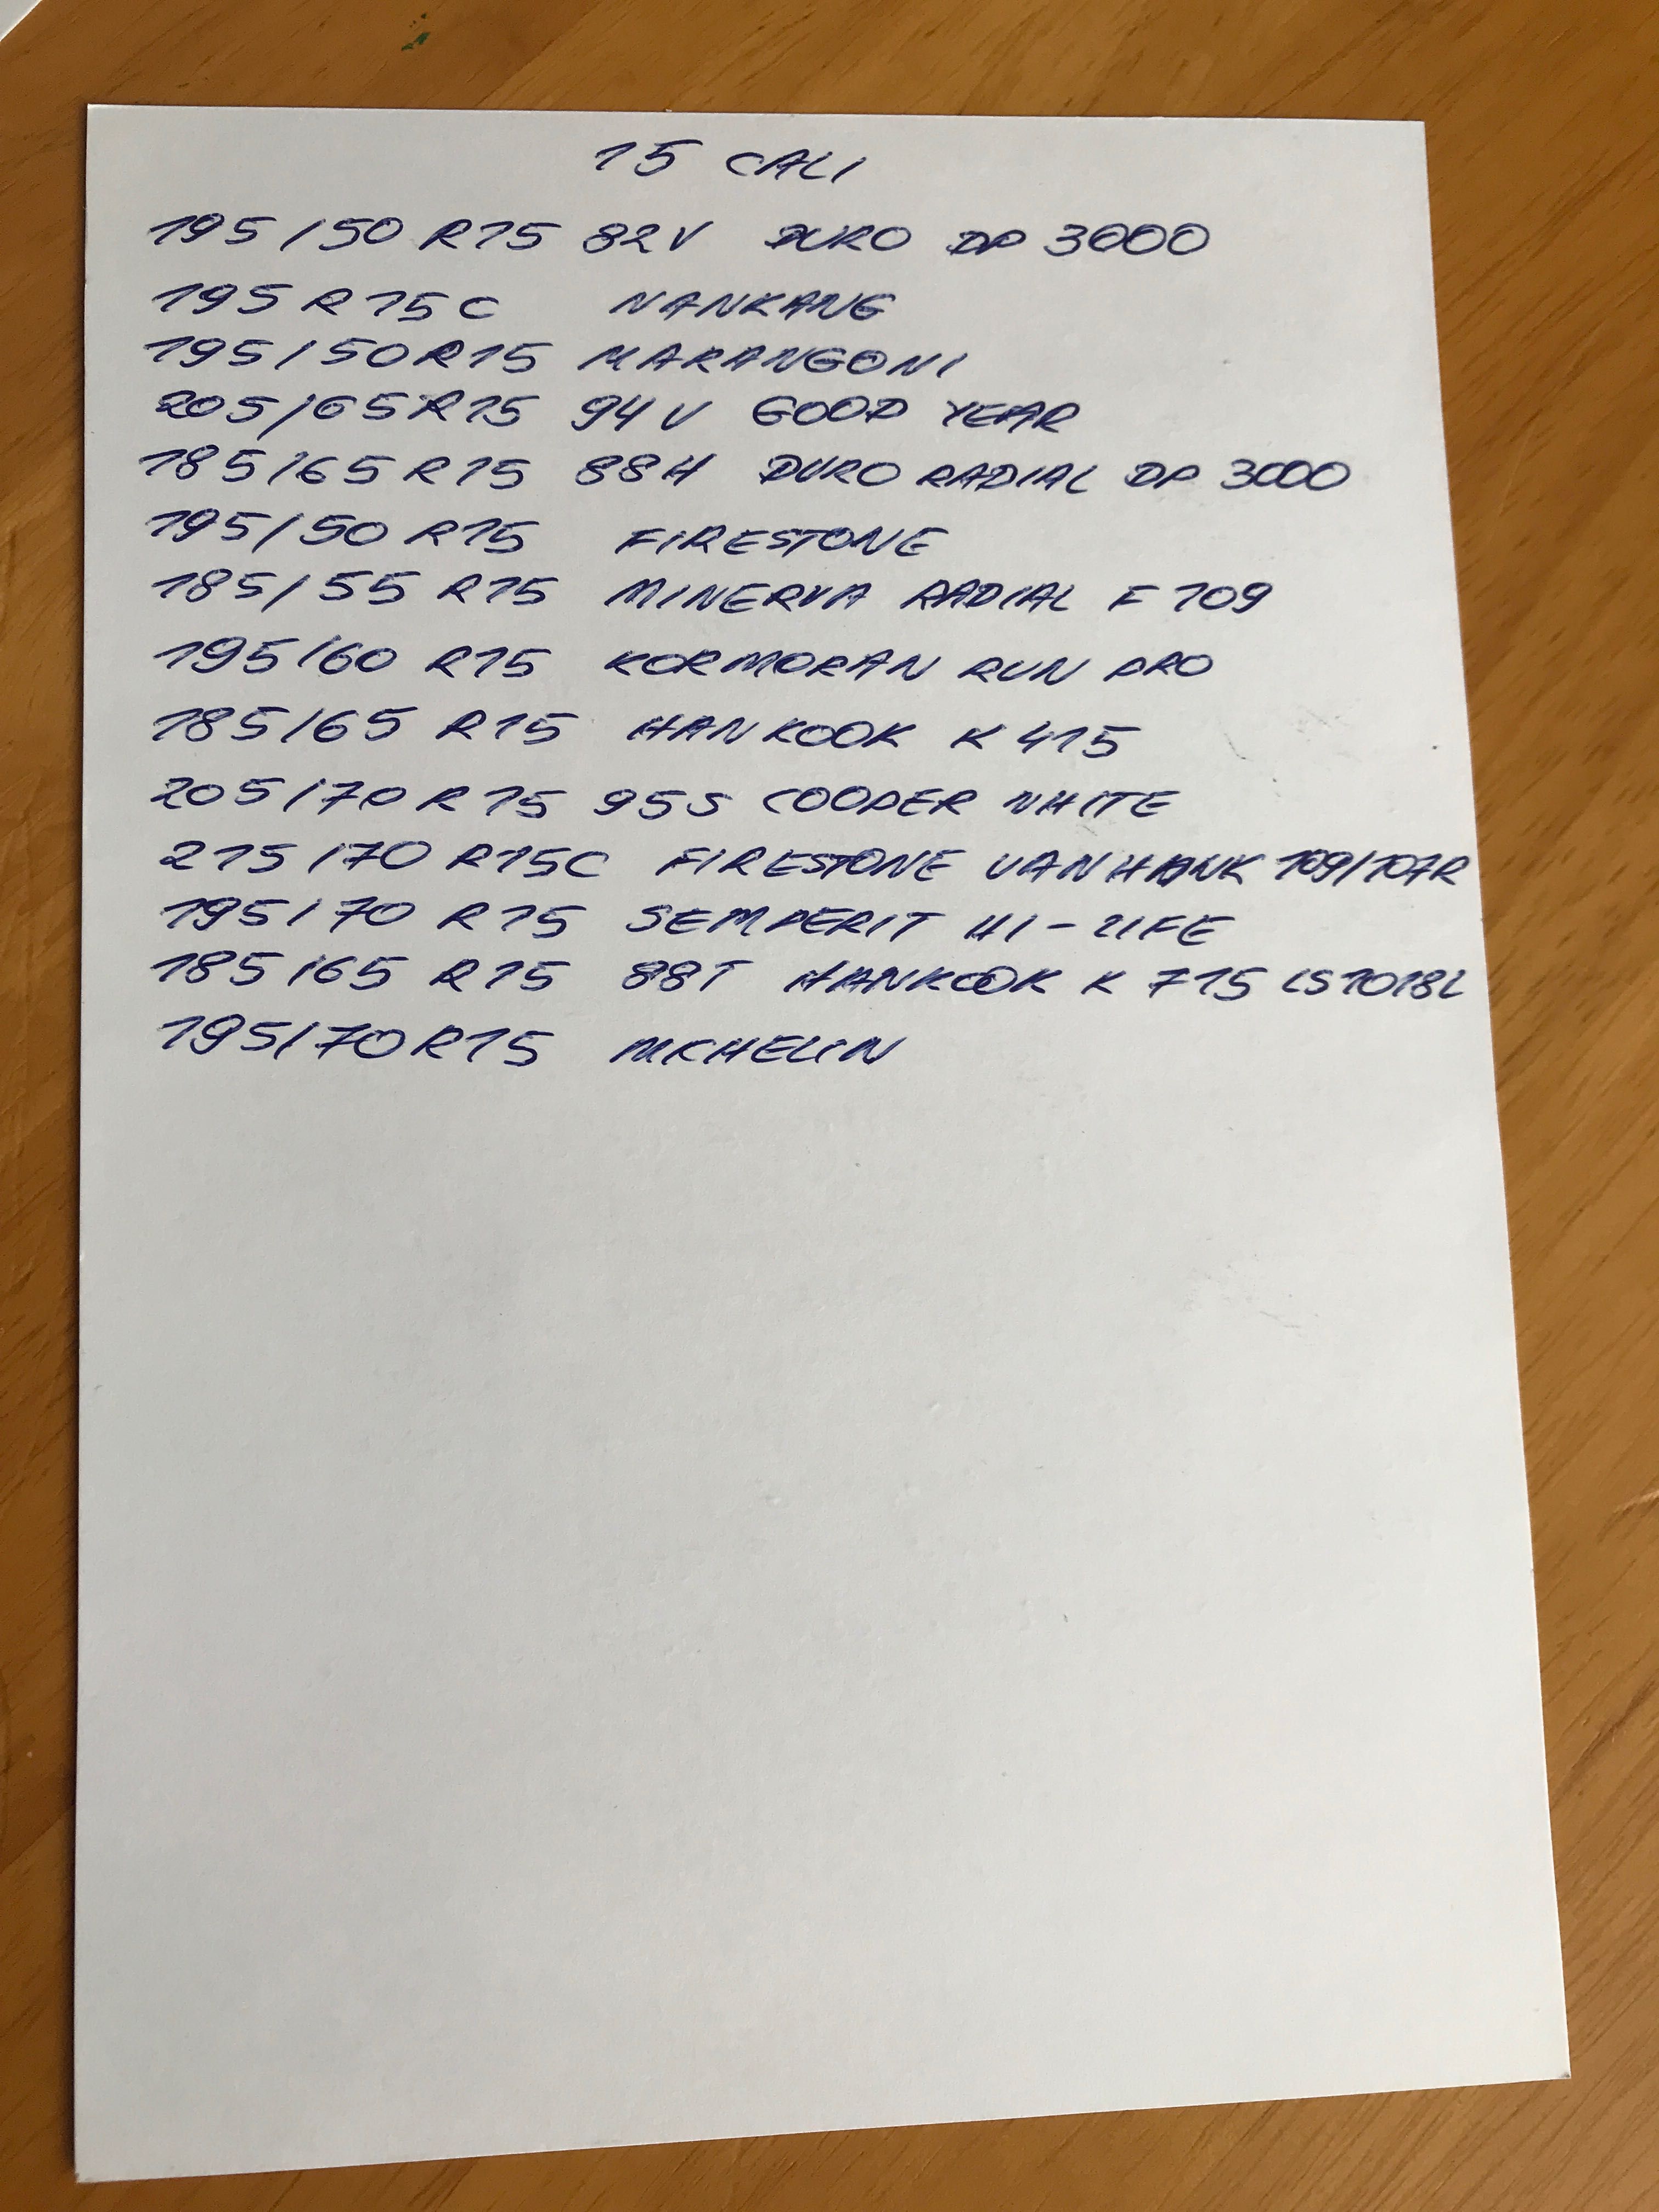 15 CALI
195/50 R15 82V DURO DP 3000
195 R15C NANKANG
195/50R15 MARANGONI
205/65R15 94V GOOD YEAR
185/65 R15 88H DURO RADIAL DP 3000
195/50 R15 FIRESTONE
185/55 R15 MINERVA RADIAL F109
195/60 R15 KORMORAN RUN PRO
185/65 R15 HANKOOK K415
205/70 R15 95S COOPER WHITE
215/70 R15C FIRESTONE VANHAWK 109/107R
195/70 R15 SEMPERIT HI-LIFE
185/65 R15 88T HANKOOK K 715 LS1018L
195/70R15 MICHELIN